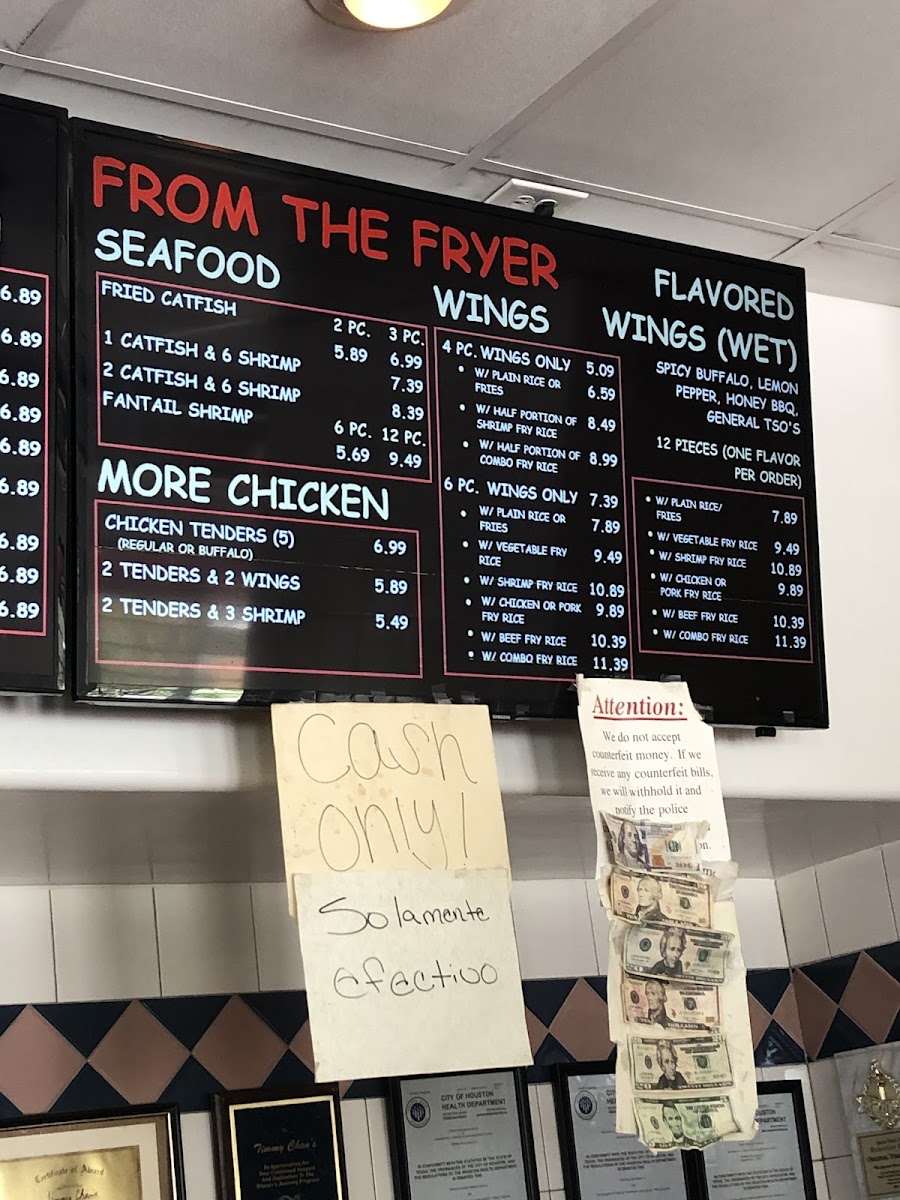 6.89
6.89
6.89
6.89
6.89
6.89
6.89
6.89
6.89
FROM THE FRYER
SEAFOOD
FRIED CATFISH
2 PC. 3 PC.
5.89 6.99
1 CATFISH & 6 SHRIMP 7.39
2 CATFISH & 6 SHRIMP 8.39
FANTAIL SHRIMP
6 PC. 12 PC.
5.69 9.49
MORE CHICKEN
CHICKEN TENDERS (5) 6.99
(REGULAR OR BUFFALO)
2 TENDERS & 2 WINGS 5.89
2 TENDERS & 3 SHRIMP 5.49
WINGS
4 PC. WINGS ONLY 5.09
• W/ PLAIN RICE OR 6.59
FRIES
• W/ HALF PORTION OF 8.49
SHRIMP FRY RICE
• W/ HALF PORTION OF 8.99
COMBO FRY RICE
6 PC. WINGS ONLY 7.39
• W/ PLAIN RICE OR 7.89
FRIES
• W/ VEGETABLE FRY 9.49
RICE
• W/ SHRIMP FRY RICE 10.89
• W/ CHICKEN OR PORK 9.89
FRY RICE
• W/ BEEF FRY RICE 10.39
• W/ COMBO FRY RICE 11.39
FLAVORED
WINGS (WET)
SPICY BUFFALO, LEMON
PEPPER, HONEY BBQ,
GENERAL TSO'S
12 PIECES (ONE FLAVOR
PER ORDER)
• W/ PLAIN RICE/ 7.89
FRIES
• W/ VEGETABLE FRY RICE 9.49
• W/ SHRIMP FRY RICE 10.89
• W/ CHICKEN OR 9.89
PORK FRY RICE
• W/ BEEF FRY RICE 10.39
• W/ COMBO FRY RICE 11.39
SAMSUNG
Cash
only!
Solamente
efectivo
Attention:
We do not accept
counterfeit money. If we
receive any counterfeit bills,
we will withhold it and
notify the police
Certificate of Award
Timmy Chan's
In Appreciation for
CITY OF HOUSTON
HEALTH DEPARTMENT